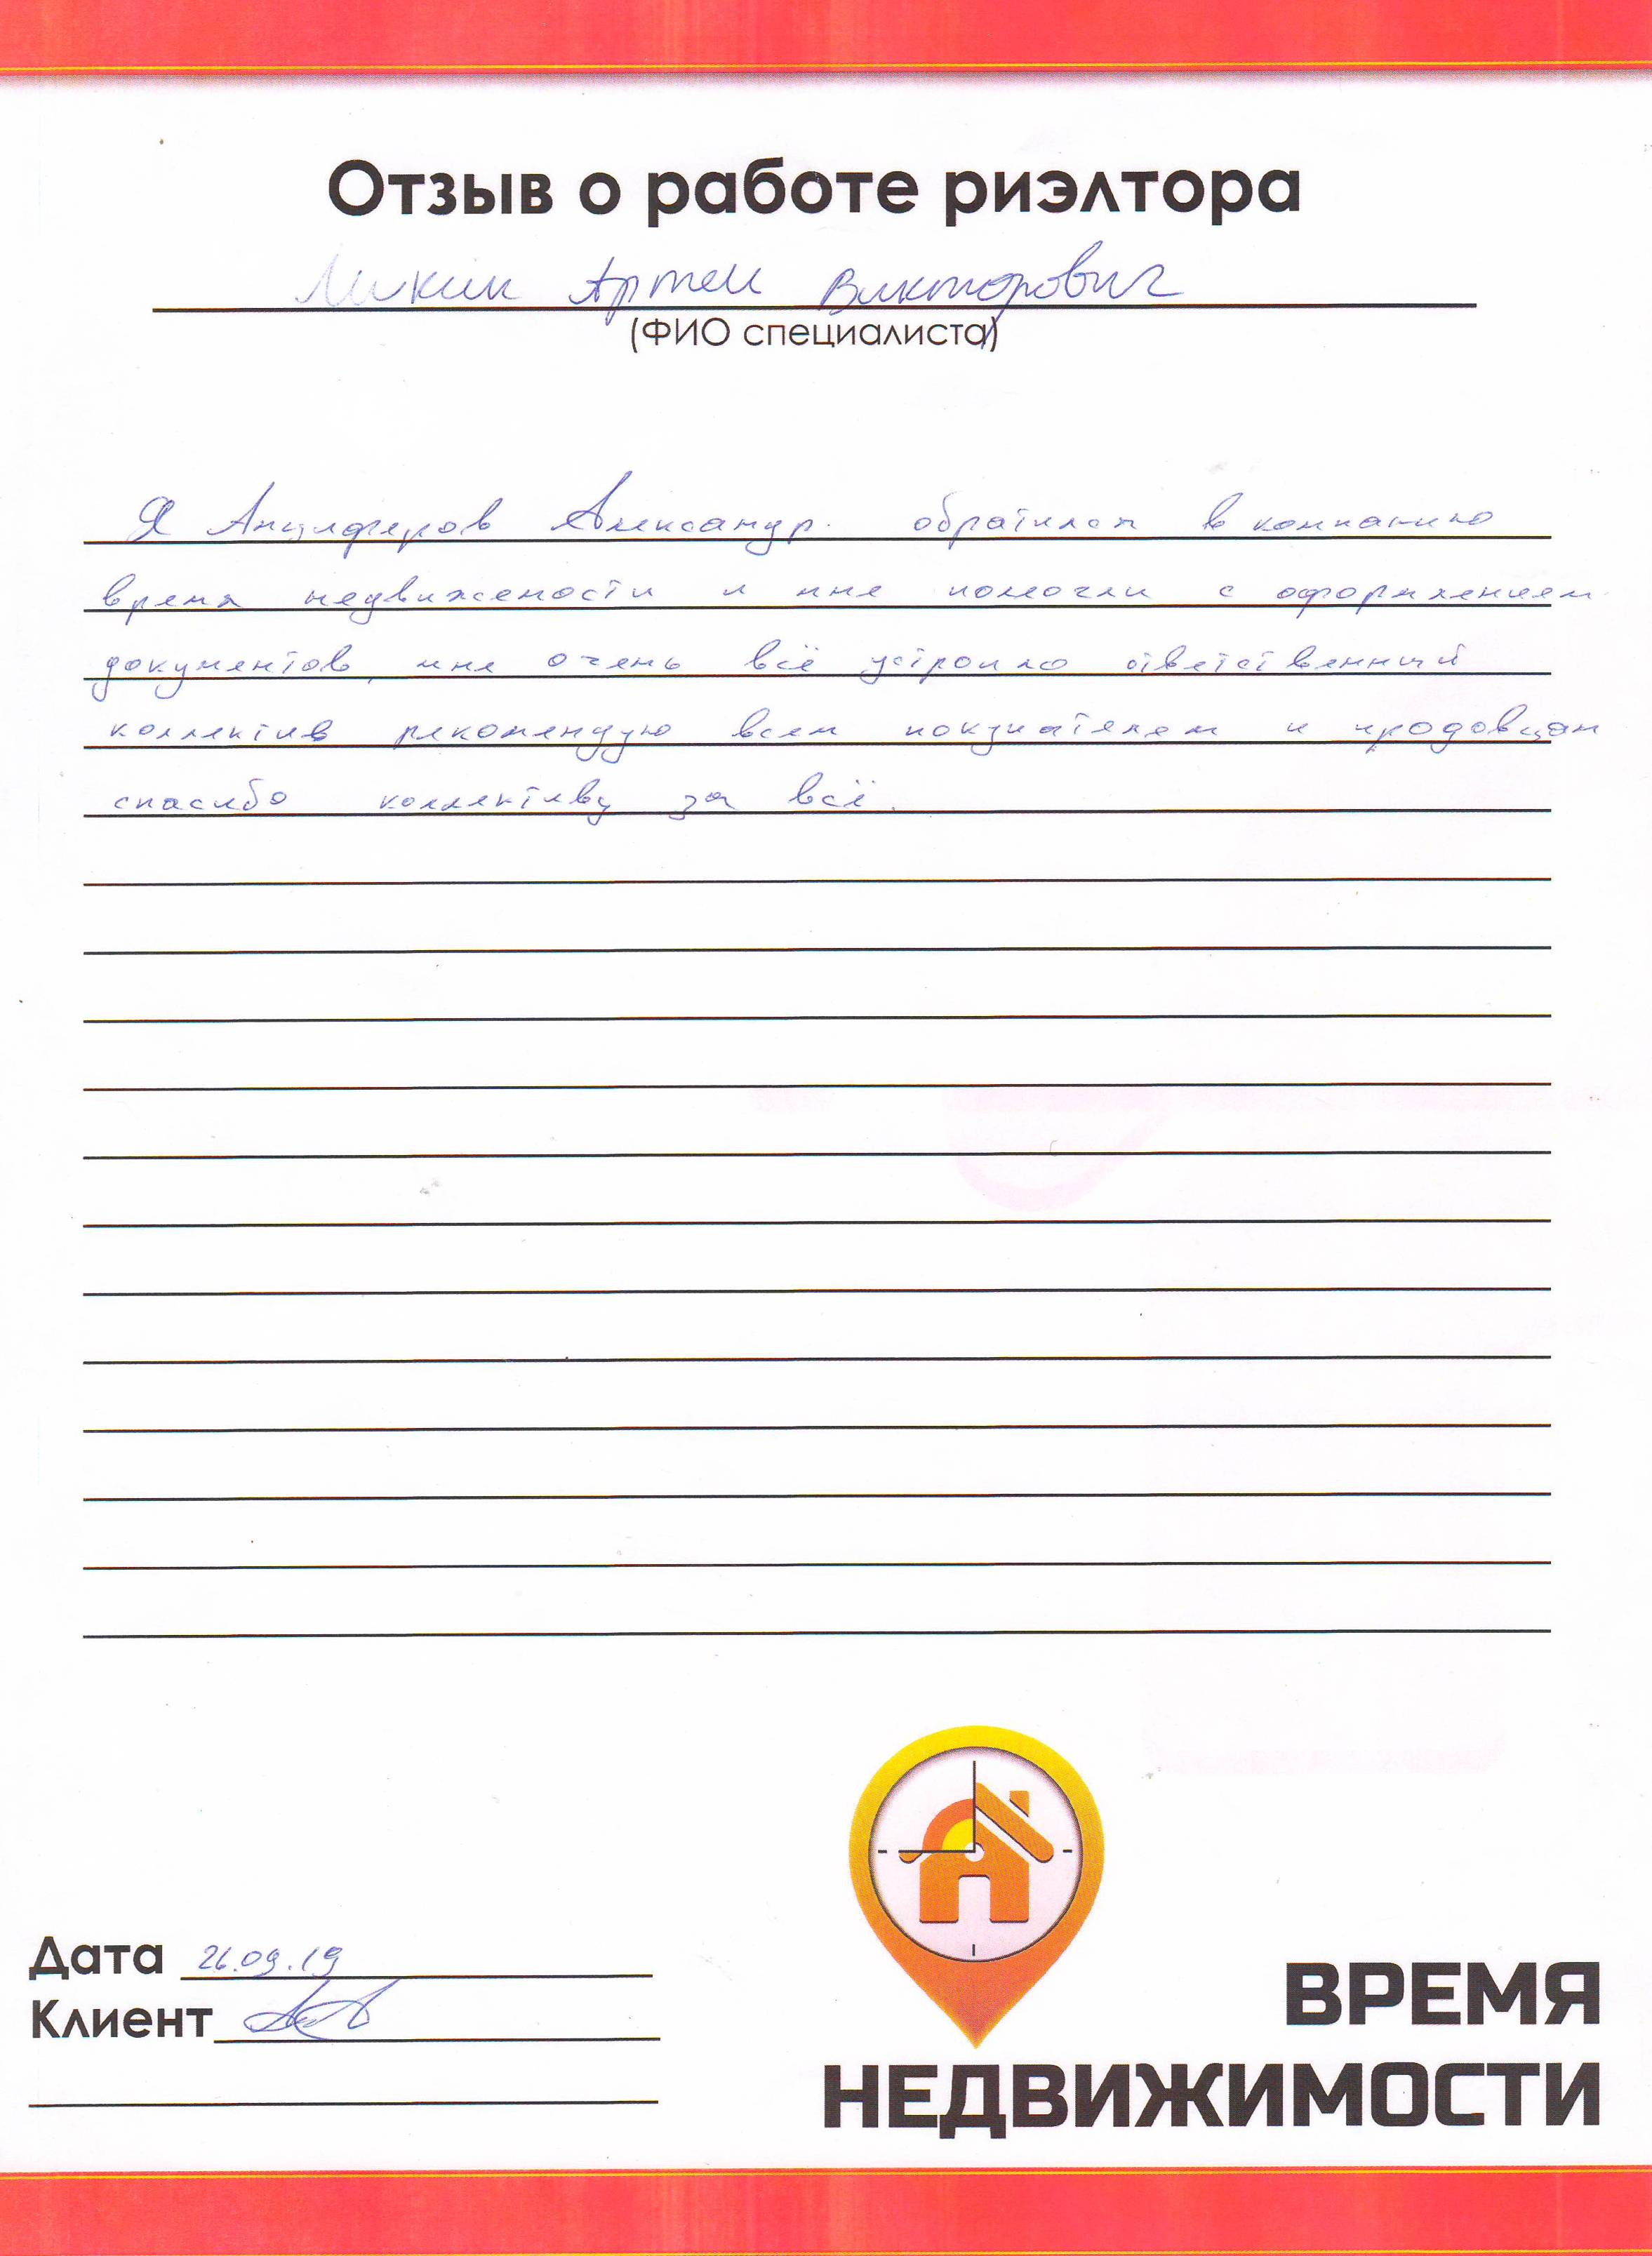 Отзыв о работе риэлтора
Артем Викторович
(ФИО специалиста)
Я Анцилферов Александр. обратился в компанию
время недвижемости и мне помогли с оформлением
документов, мне очень всё устроило ответственный
коллектив рекомендую всем покупателем и продовцам
спасибо коллективу за всё.
Дата 26.09.19
Клиент
ВРЕМЯ
НЕДВИЖИМОСТИ